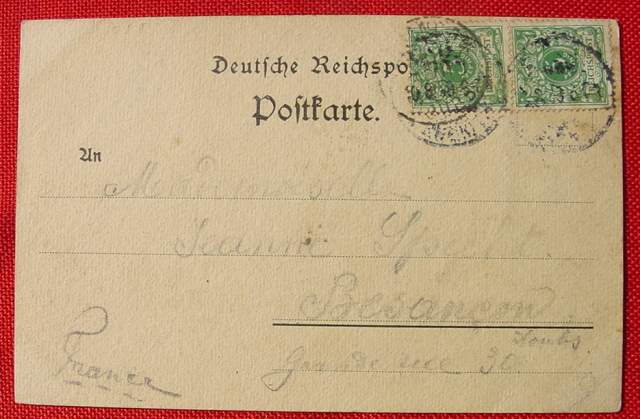 Deutsche Reichspo
Postkarte.
An
Mademoiselle
Jeanne
Besançon
Doubs
Grande rue 30
France